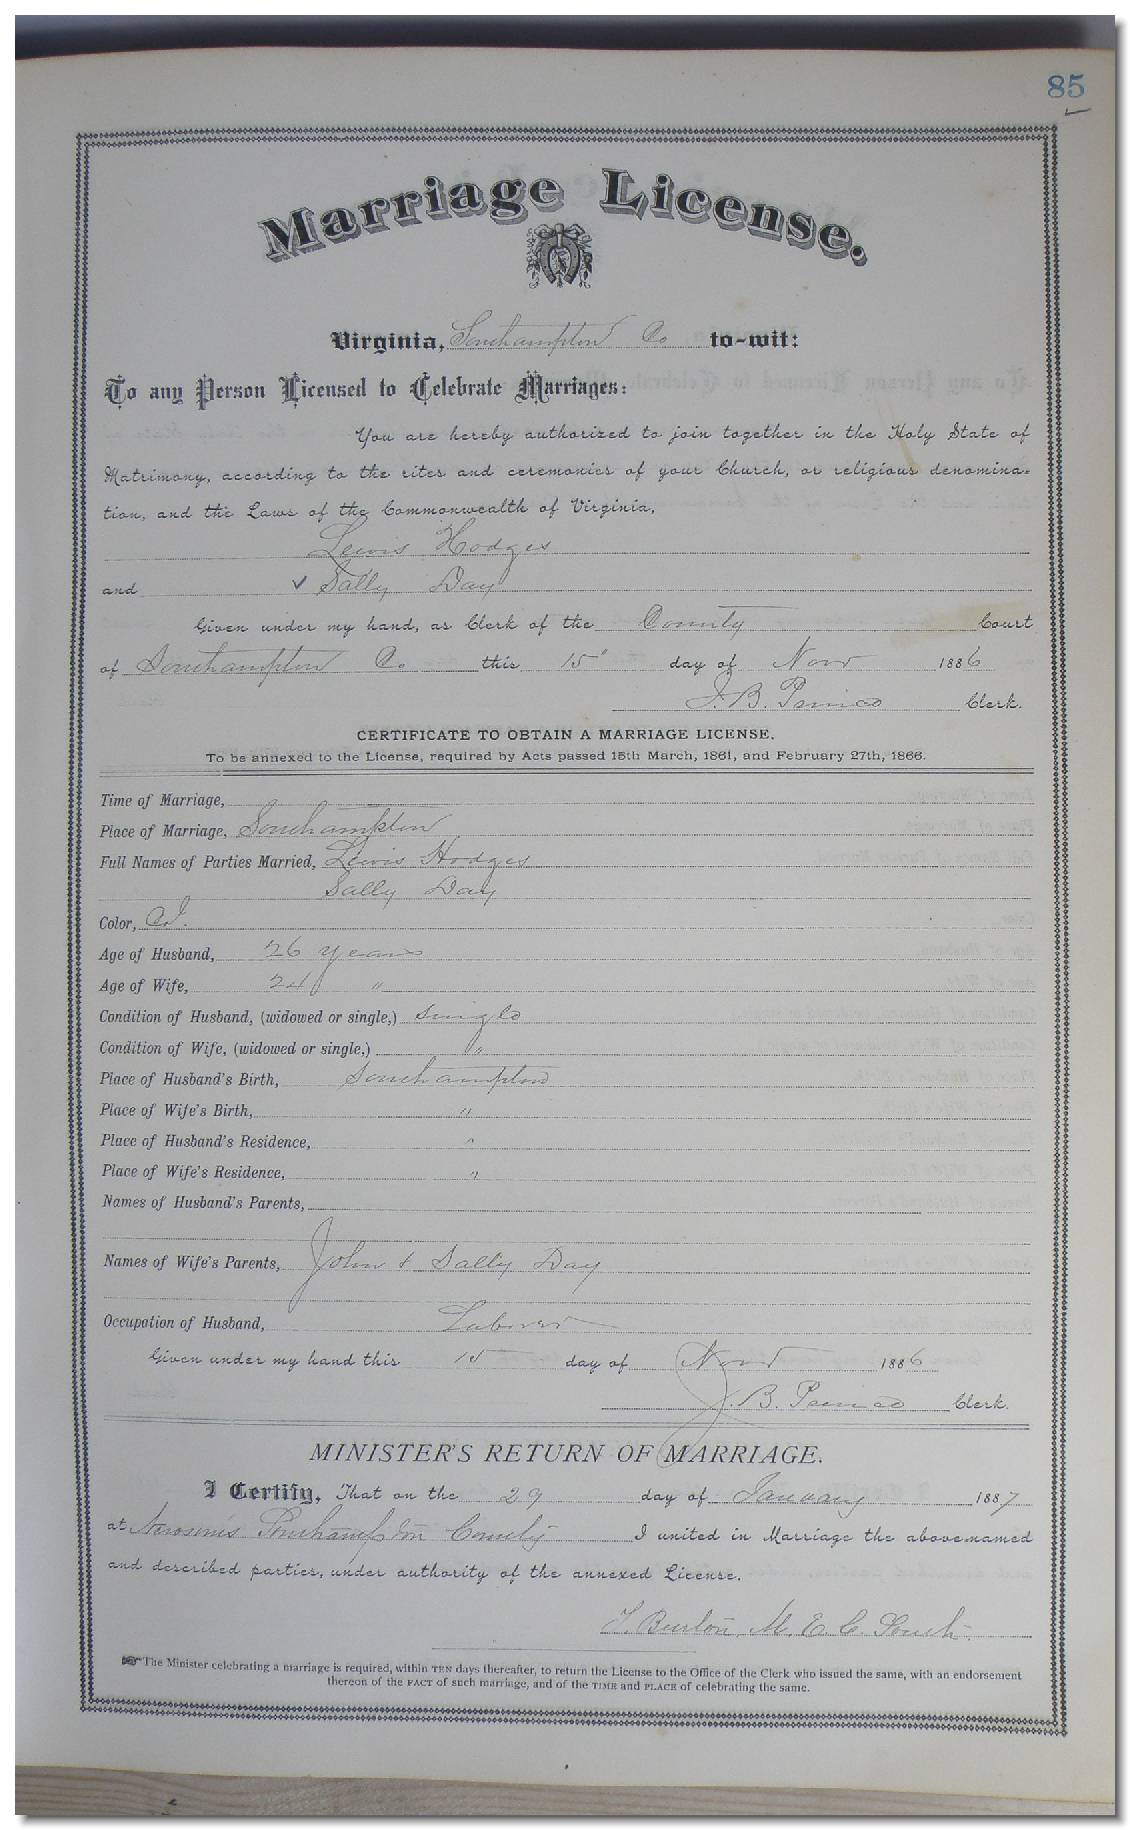 85
Marriage License.
Virginia, Southampton Co to-wit:
To any Person Licensed to Celebrate Marriages:
You are hereby authorized to join together in the Holy State of
Matrimony, according to the rites and ceremonies of your Church, or religious denomina-
tion, and the Laws of the Commonwealth of Virginia,
Lewis Hodges
and Sally Day
Given under my hand, as Clerk of the County Court
of Southampton Co this 15" day of Novr 1886
J. B. Clerk.
CERTIFICATE TO OBTAIN A MARRIAGE LICENSE.
To be annexed to the License, required by Acts passed 15th March, 1861, and February 27th, 1866.
Time of Marriage,
Place of Marriage, Southampton
Full Names of Parties Married, Lewis Hodges
Sally Day
Color, Col.
Age of Husband, 26 years
Age of Wife, 24 "
Condition of Husband, (widowed or single,) Single
Condition of Wife, (widowed or single,) "
Place of Husband's Birth, Southampton
Place of Wife's Birth, "
Place of Husband's Residence, "
Place of Wife's Residence, "
Names of Husband's Parents,
Names of Wife's Parents, John & Sally Day
Occupation of Husband, Laborer
Given under my hand this 15 day of Novr 1886
J. B. Clerk.
MINISTER'S RETURN OF MARRIAGE.
I Certify, That on the 29 day of January 1887
at Southampton County I united in Marriage the above-named
and described parties, under authority of the annexed License.
Burton, M. E. C. South.
The Minister celebrating a marriage is required, within TEN days thereafter, to return the License to the Office of the Clerk who issued the same, with an endorsement
thereon of the FACT of such marriage, and of the TIME and PLACE of celebrating the same.